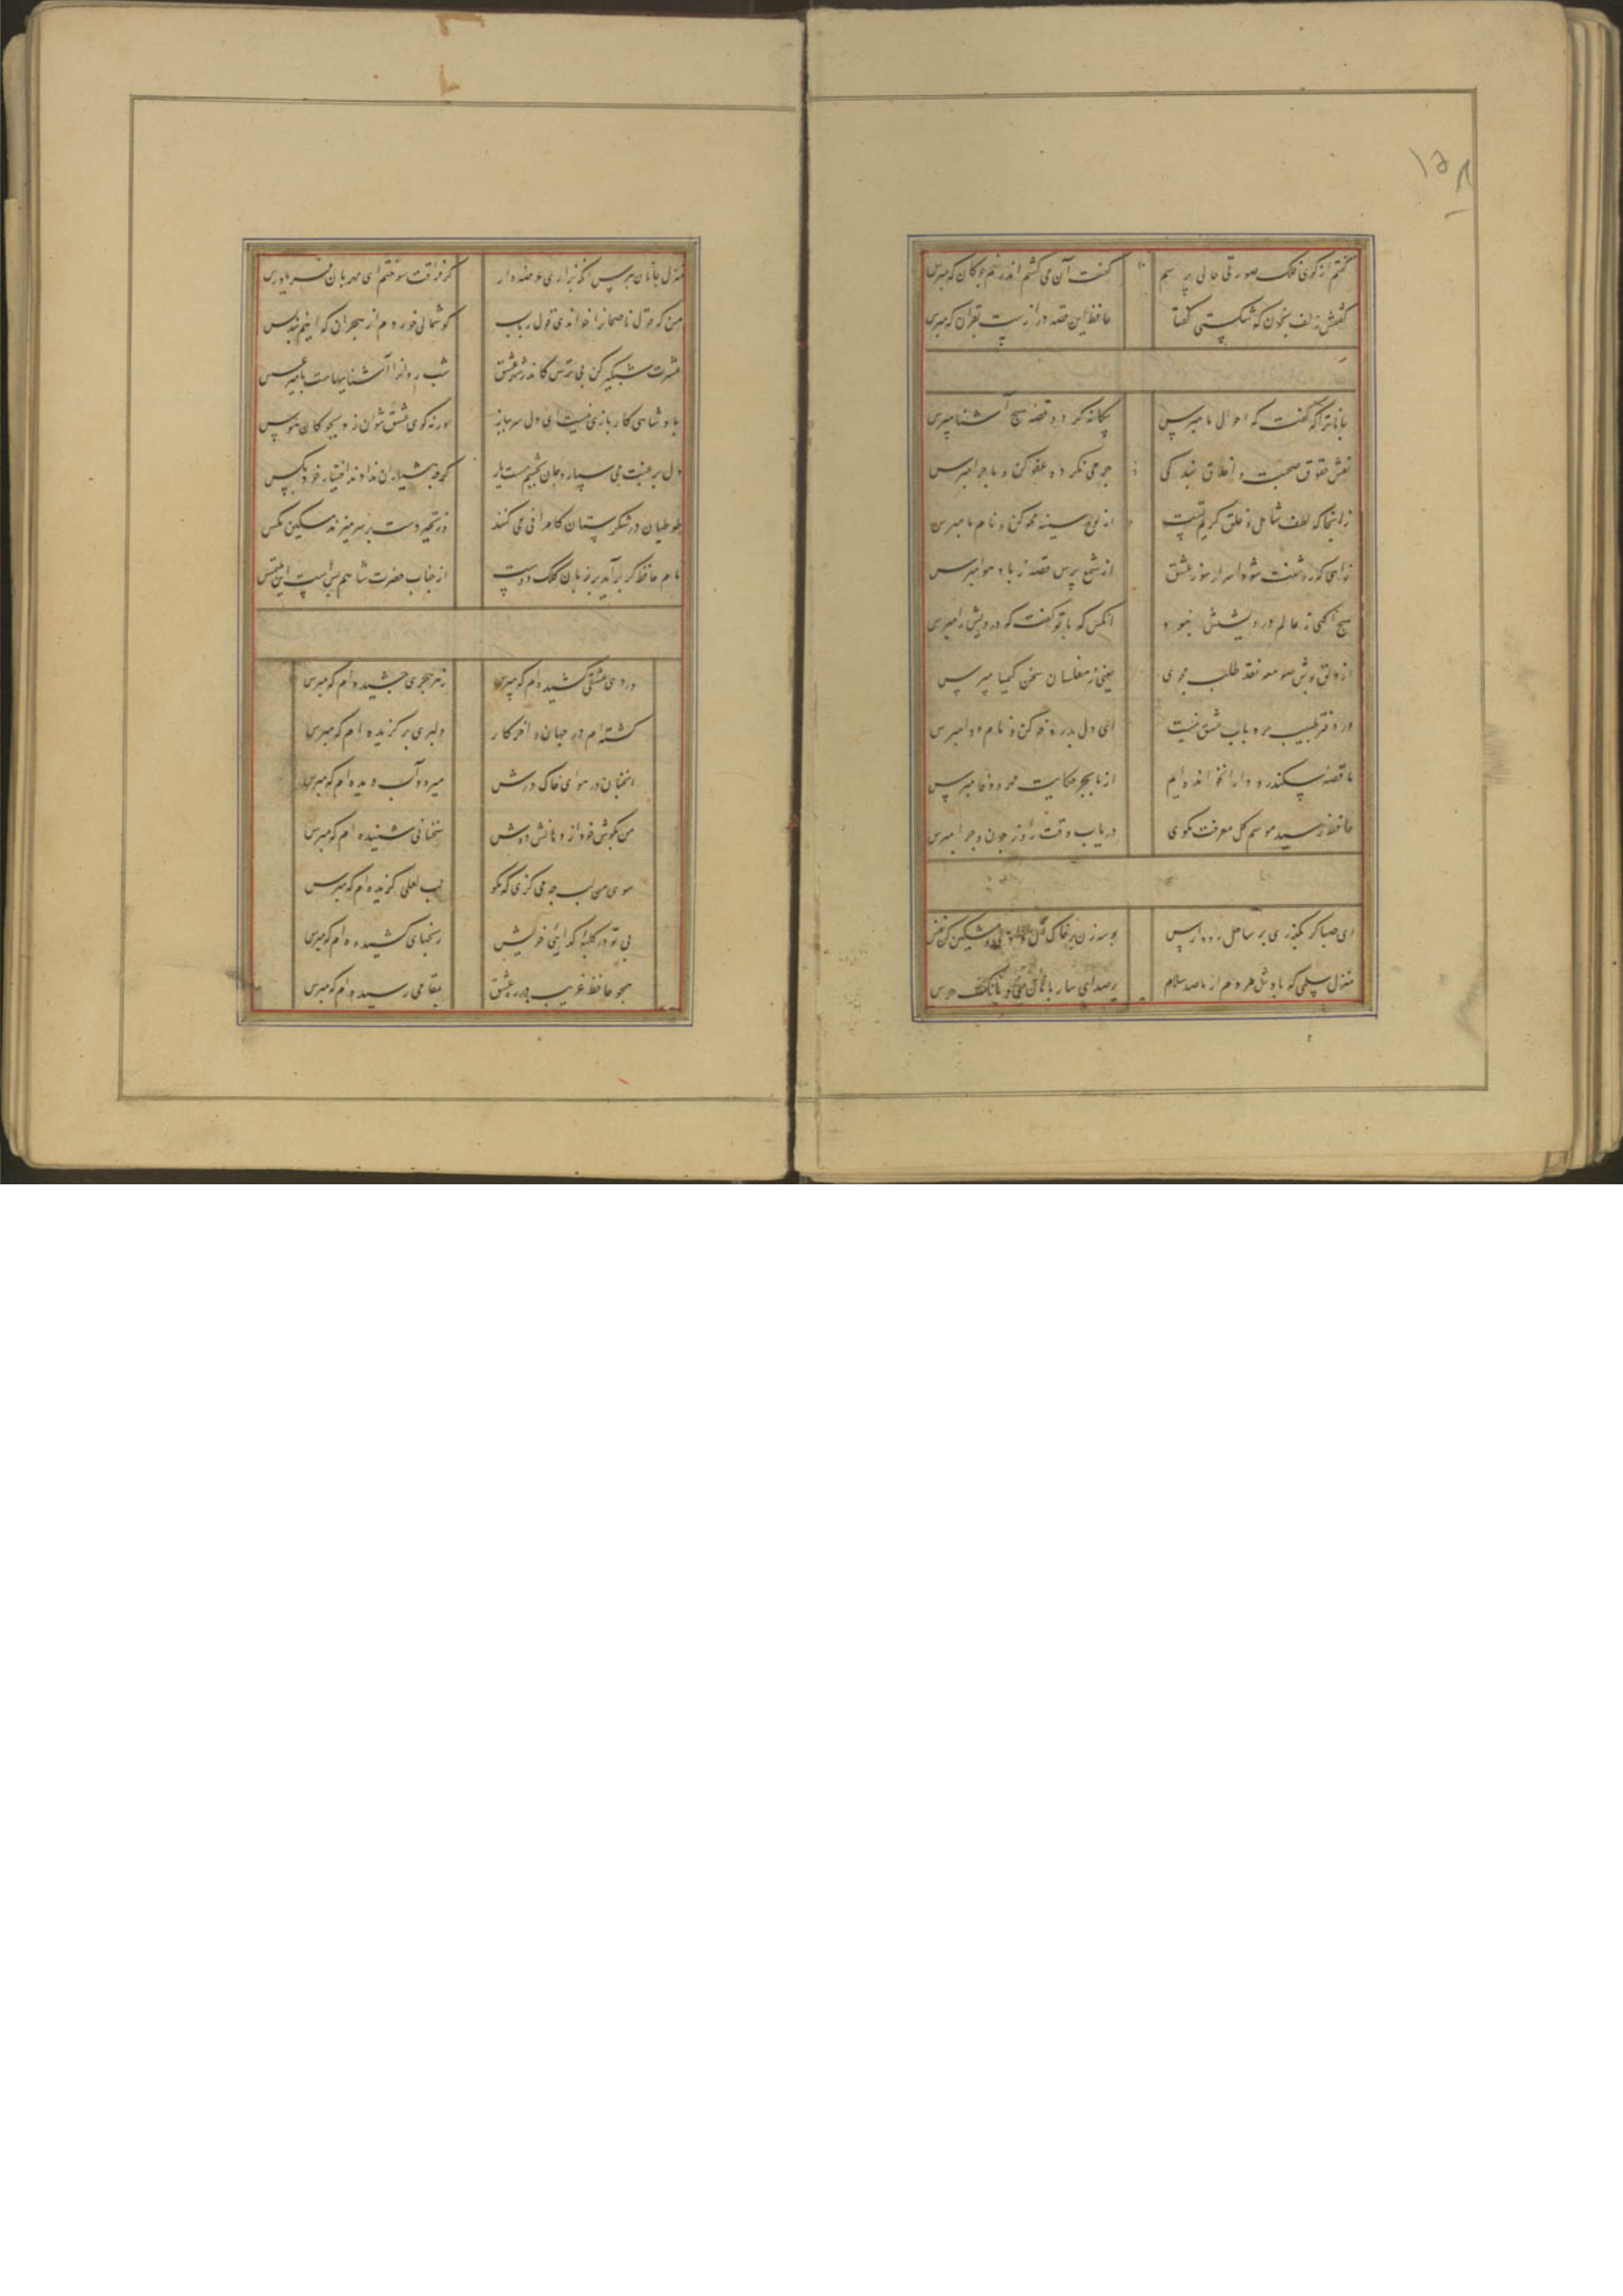 ۱۵۸
گفتم از گوی فلک صورت حالی پرسم
گفت آن می کشم اندر خم چوکان که مپرس
گفتمش زلف بخون که شکستی گفتا
حافظ این قصه درازست بقرآن که مپرس
جانا ترا که گفت که احوال ما مپرس
بیکانه کرد و قصه هیچ آشنا مپرس
نقش حقوق صحبت و اخلاق بندکی
جرمی نکرده عفو کن و ماجرا مپرس
زانجا که لطف شامل و خلق کریم تست
از لوح سینه محو کن و نام ما مپرس
خواهی که روشنت شود اسرار سوز عشق
از شمع پرس قصه ز باد هوا مپرس
هیچ آکهی ز عالم درویشیش نبود
آنکس که با تو گفت که درویش را مپرس
از دلق پوش صومعه نقد طلب مجوی
یعنی ز مفلسان سخن کیمیا مپرس
در دفتر طبیب خرد باب عشق نیست
ای دل بدرد خو کن و نام دوا مپرس
ما قصه سکندر و دارا نخوانده ایم
از ما بجز حکایت مهر و وفا مپرس
حافظ رسید موسم کل معرفت مکوی
دریاب وقت را و ز چون و چرا مپرس
ای صبا کر بکذری بر ساحل رود ارس
بوسه زن بر خاک آن وادی و مشکین کن نفس
منزل سلمی که بادش هر دم از ما صد سلام
پر صدای ساربانان و بانک جرس
منزل جانان ببوس آنکه بزاری عرضه دار
کز فراقت سوختم ای مهربان فریاد رس
من که قول ناصحانرا خواندمی قول رباب
کوشمالی خوردم از هجران که اینم پند بس
عشرت شبکیر کن بی ترس کاندر شهر عشق
شب روانرا آشناییهاست با میر عسس
دل برغبت می سپارد جان بچشم مست یار
کرچه هشیاران ندادند اختیار خود بکس
طوطیان در شکرستان کامرانی می کنند
وز تحیر دست بر سر میزند مسکین مکس
نام حافظ کر برآید بر زبان کلک دوست
از جناب حضرت شاهم بس است این ملتمس
درد عشقی کشیده ام که مپرس
زهر هجری چشیده ام که مپرس
کشته ام در جهان و آخر کار
دلبری برکزیده ام که مپرس
آنچنان در هوای خاک درش
میرود آب دیده ام که مپرس
من بکوش خود از دهانش دوش
سخنانی شنیده ام که مپرس
سوی من لب چه می کزی که مکو
لب لعلی کزیده ام که مپرس
بی تو در کلبه کدایی خویش
رنجهای کشیده ام که مپرس
همچو حافظ غریب در ره عشق
بمقامی رسیده ام که مپرس